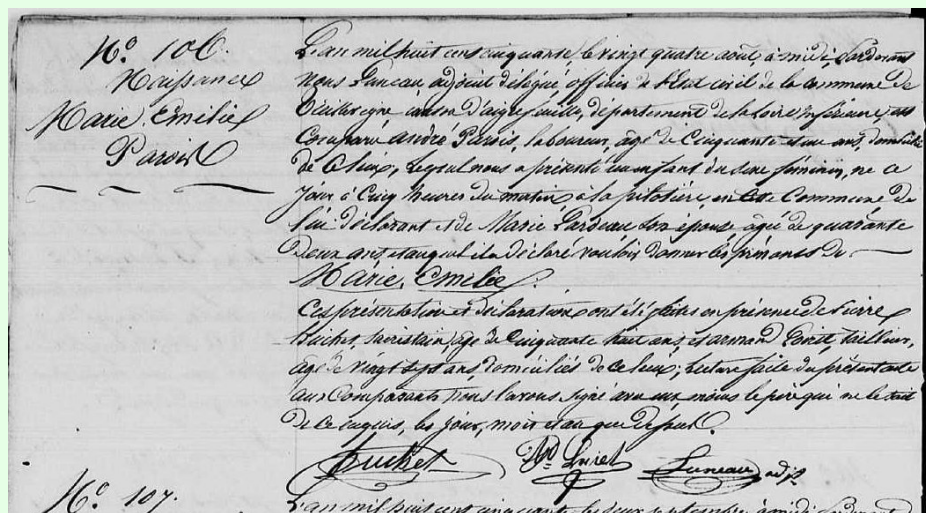 N.o 106.
Naissance
Marie Emilie
Parois
L'an mil huit cent cinquante, le vingt quatre août, à midi, Pardevant
nous Luneau adjoint délégué, officier de l'Etat civil de la commune de
canton d'aigrefeuille, département de la Loire inférieure, est
Comparu andré Parois, laboureur, âgé de Cinquante et un ans, domicilié
de Ce lieu, Lequel nous a présenté un enfant du sexe féminin, né ce
jour à Cinq heures du matin à la en Cette Commune de
lui déclarant et de Marie Pardeau Son épouse âgée de quarante
deux ans et auquel il a déclaré vouloir donner les prénoms de
Marie, Emilie.
Ces présentation et déclaration ont été faites en présence de Pierre
Huchet, sacristain, âgé de Cinquante huit ans, et armand Poiret, tailleur,
âgé de vingt sept ans, domiciliés de Ce lieu; Lecture faite du présent acte
aux Comparants nous l'avons signé avec eux moins le père qui ne le sait
de ce enquis, les jour, mois et an que dessus.
Huchet Luneau adj.
N.o 107.
L'an mil huit cent cinquante, le deux septembre, à midi, Pardevant